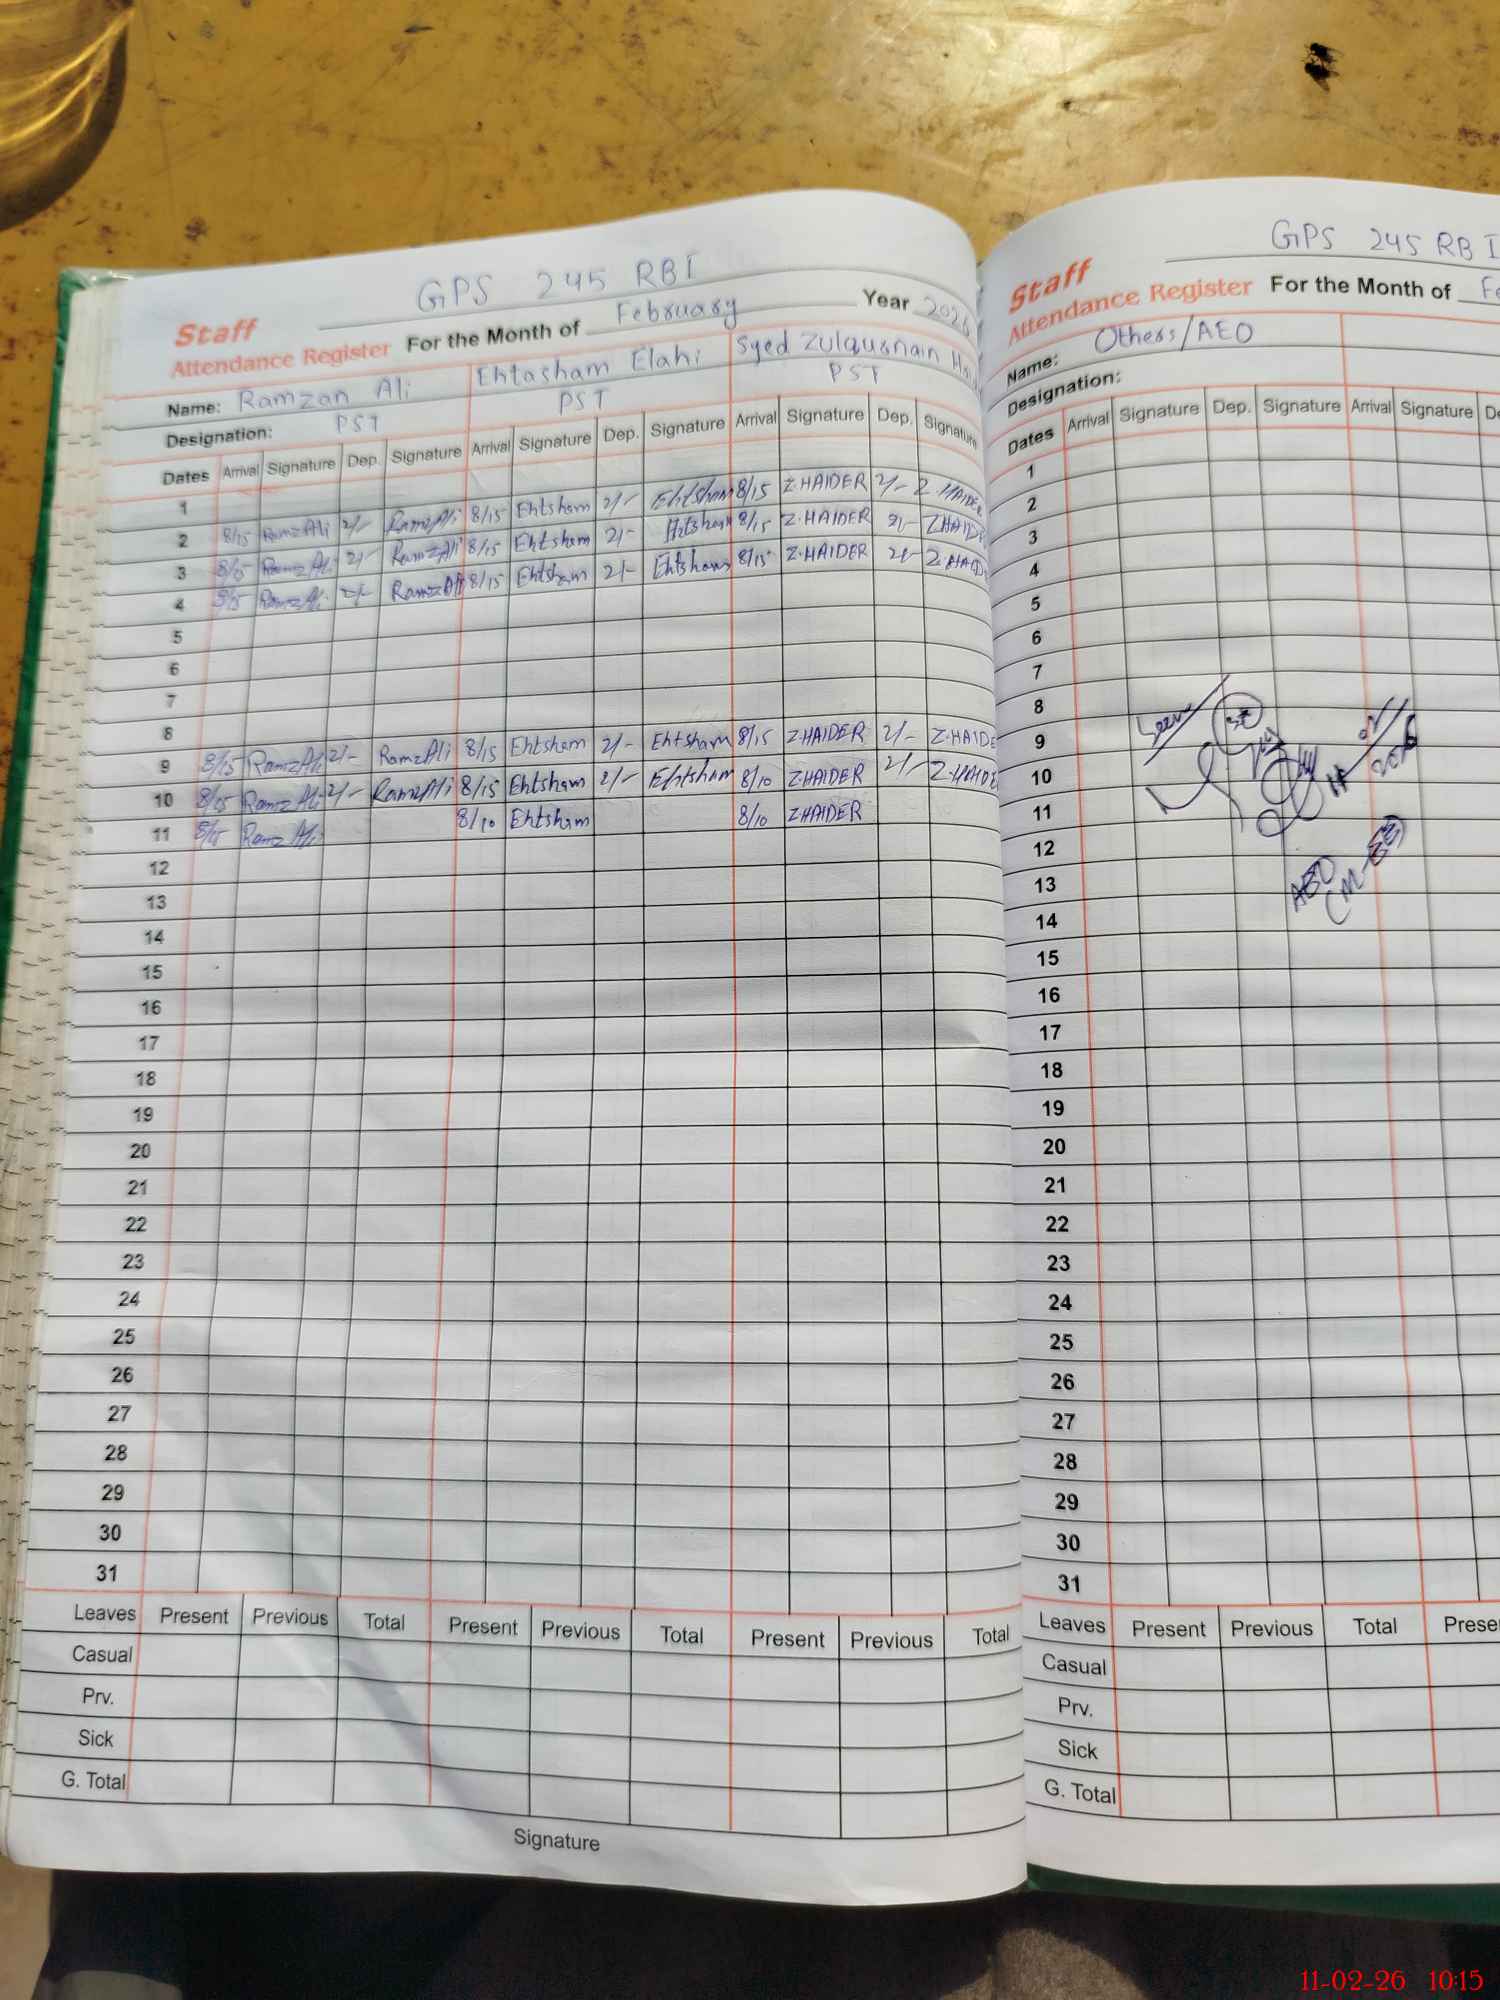 GPS 245 RBI
Staff
Attendance Register For the Month of February Year 2026
Name: Ramzan Ali Ehtasham Elahi Syed Zulqusnain
Designation: PST PST PST
Dates Arrival Signature Dep. Signature Arrival Signature Dep. Signature Arrival Signature Dep. Signature
1
2 8/15 RamzAli 2/- RamzAli 8/15 Ehtsham 2/- Ehtsham 8/15 Z.HAIDER 2/- Z.HAIDER
3 8/15 RamzAli 2/- RamzAli 8/15 Ehtsham 2/- Ehtsham 8/15 Z.HAIDER 2/-
4 8/15 RamzAli 2/- RamzAli 8/15 Ehtsham 2/- Ehtsham 8/15 Z.HAIDER 2/-
5
6
7
8
9 8/15 RamzAli 2/- RamzAli 8/15 Ehtsham 2/- Ehtsham 8/15 Z.HAIDER 2/- Z.HAIDE
10 8/15 RamzAli 2/- RamzAli 8/15 Ehtsham 2/- Ehtsham 8/10 Z.HAIDER 2/-
11 8/15 RamzAli 8/10 Ehtsham 8/10 ZHAIDER
12
13
14
15
16
17
18
19
20
21
22
23
24
25
26
27
28
29
30
31
Leaves Present Previous Total Present Previous Total Present Previous Total
Casual
Prv.
Sick
G. Total
Signature
GPS 245 RB I
Staff
Attendance Register For the Month of
Name: Others/AEO
Designation:
Dates Arrival Signature Dep. Signature Arrival Signature
1
2
3
4
5
6
7
8
9
10
11
12
13
14
15
16
17
18
19
20
21
22
23
24
25
26
27
28
29
30
31
Leaves Present Previous Total
Casual
Prv.
Sick
G. Total
11-02-26 10:15